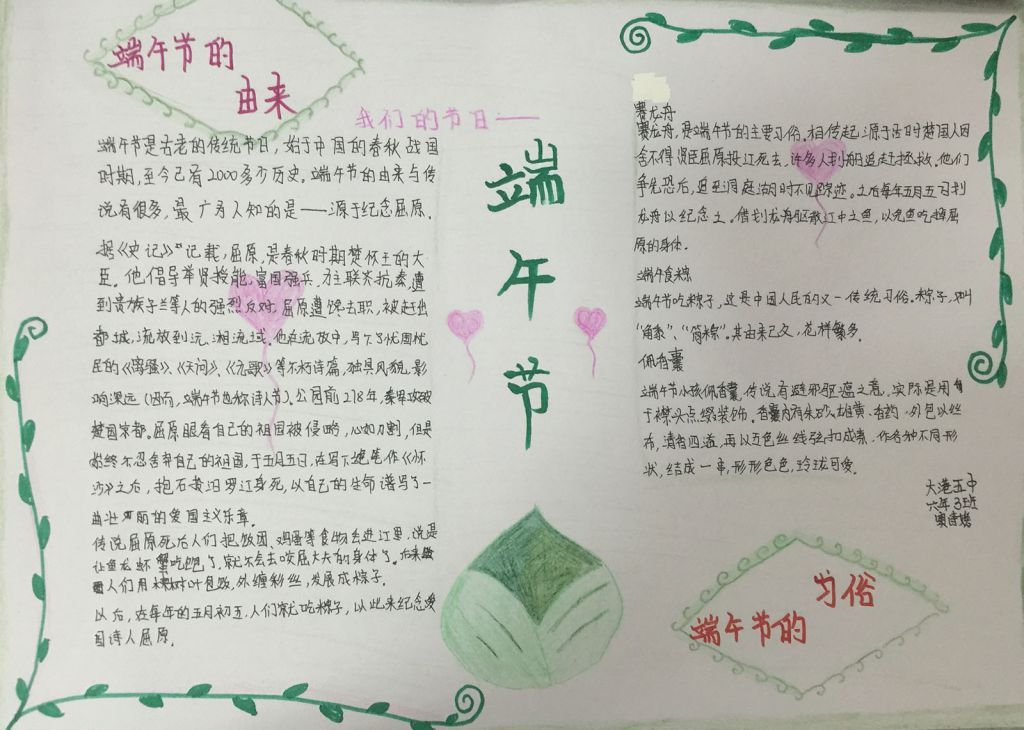 端午节的
由来
我们的节日——
端午节
端午节是古老的传统节日，始于中国的春秋战国
时期，至今已有2000多少历史。端午节的由来与传
说有很多，最广为人知的是——源于纪念屈原。
据《史记》记载，屈原，是春秋时期楚怀王的大
臣。他倡导举贤授能，富国强兵，力主联齐抗秦，遭
到贵族子兰等人的强烈反对，屈原遭馋去职，被赶出
都城，流放到沅、湘流域。他在流放中，写下了忧国忧
民的《离骚》、《天问》、《九歌》等不朽诗篇，独具风貌，影
响深远（因而，端午节也称诗人节）。公园前278年，秦军攻破
楚国京都。屈原眼看自己的祖国被侵略，心如刀割，但是
始终不忍舍弃自己的祖国，于五月五日，在写下绝笔作《怀
沙》之后，抱石投汨罗江身死，以自己的生命谱写了一
曲壮丽的爱国主义乐章。
传说屈原死后人们把饭团、鸡蛋等食物丢进江里，说是
让鱼龙虾蟹吃饱了，就不会去咬屈大夫的身体了。后来
人们用树叶包饭，外缠彩丝，发展成棕子。
以后，在每年的五月初五，人们就吃粽子，以此来纪念爱
国诗人屈原。
赛龙舟
赛龙舟，是端午节的主要习俗。相传起源于古时楚国人因
舍不得贤臣屈原投江死去，许多人划船追赶拯救。他们
争先恐后，追至洞庭湖时不见踪迹。之后每年五月五日划
龙舟以纪念之。借划龙舟驱散江中之鱼，以免鱼吃掉屈
原的身体。
端午食粽
端午节吃粽子，这是中国人民的又一传统习俗。粽子，叫
“角黍”、“筒粽”。其由来已久，花样繁多。
佩香囊
端午节小孩佩香囊，传说有避邪驱瘟之意，实际是用
于襟头点缀装饰。香囊内有朱砂、雄黄、香药，外包以丝
布，清香四溢，再以五色丝线弦扣成索，作各种不同形
状，结成一串，形形色色，玲珑可爱。
大港五中
六年3班
端午节的
习俗